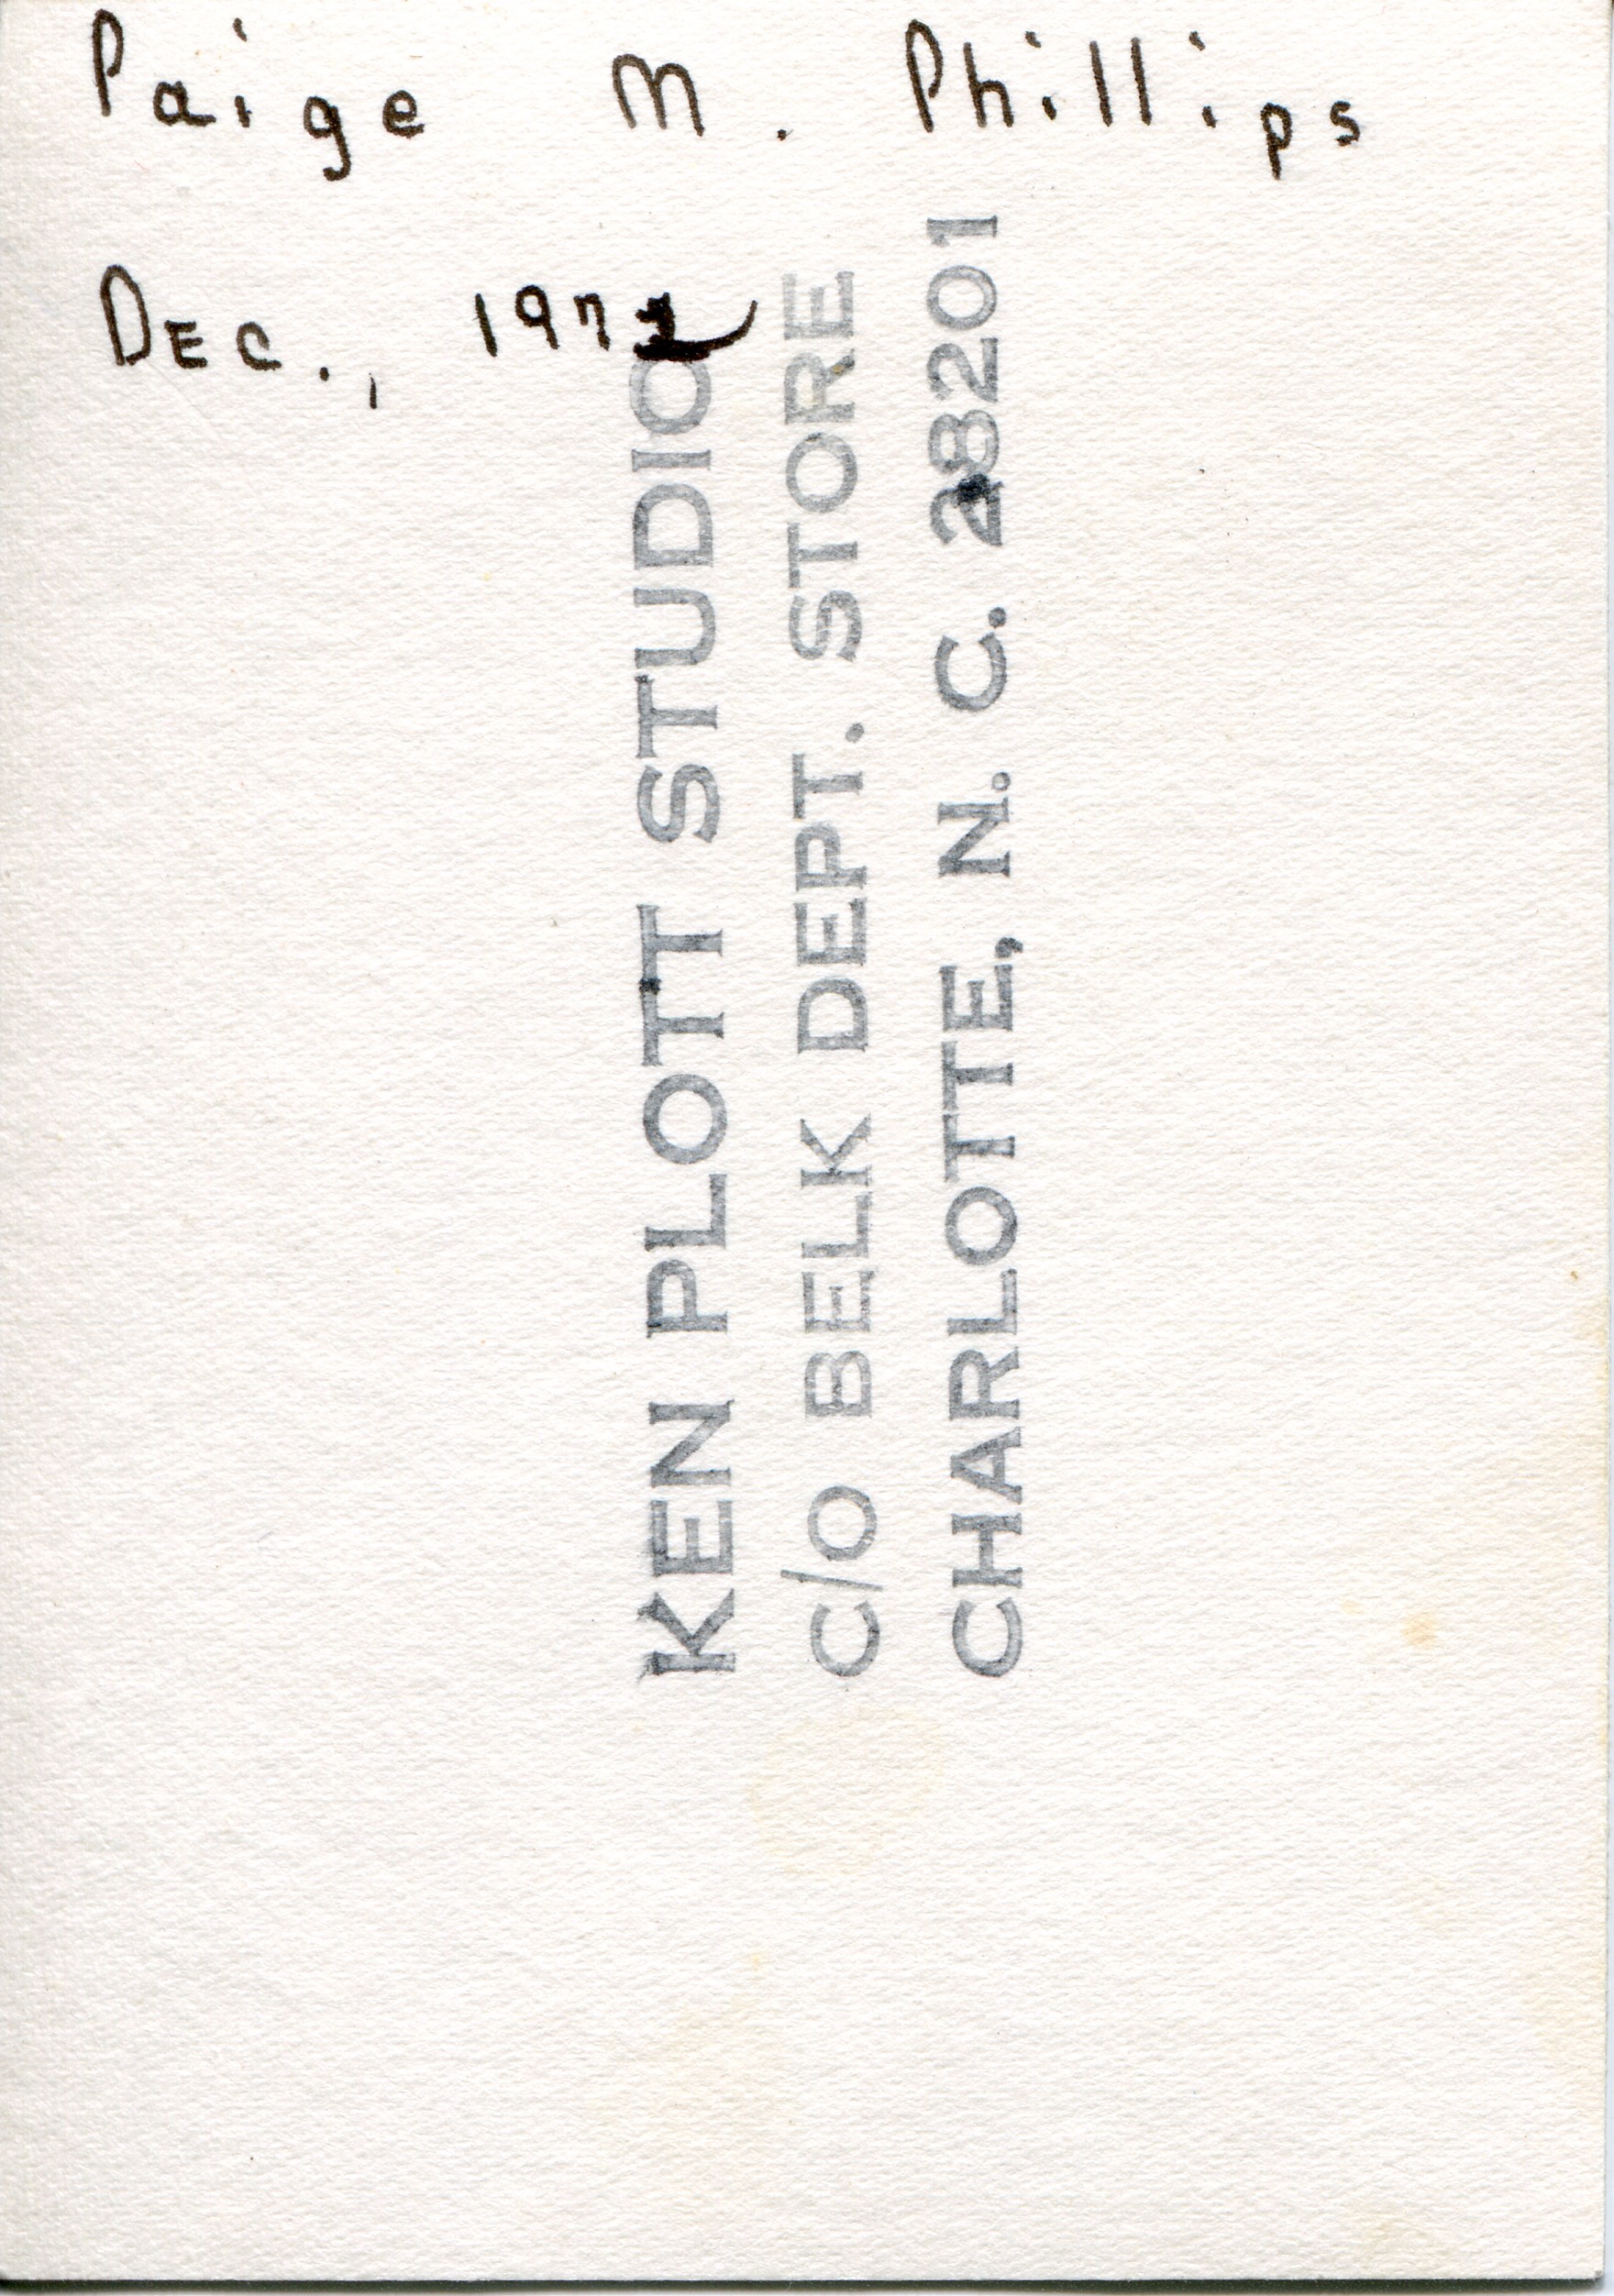 Paige M. Phillips
Dec., 1972
KEN PLOTT STUDIO
C/O BELK DEPT. STORE
CHARLOTTE, N. C. 28201